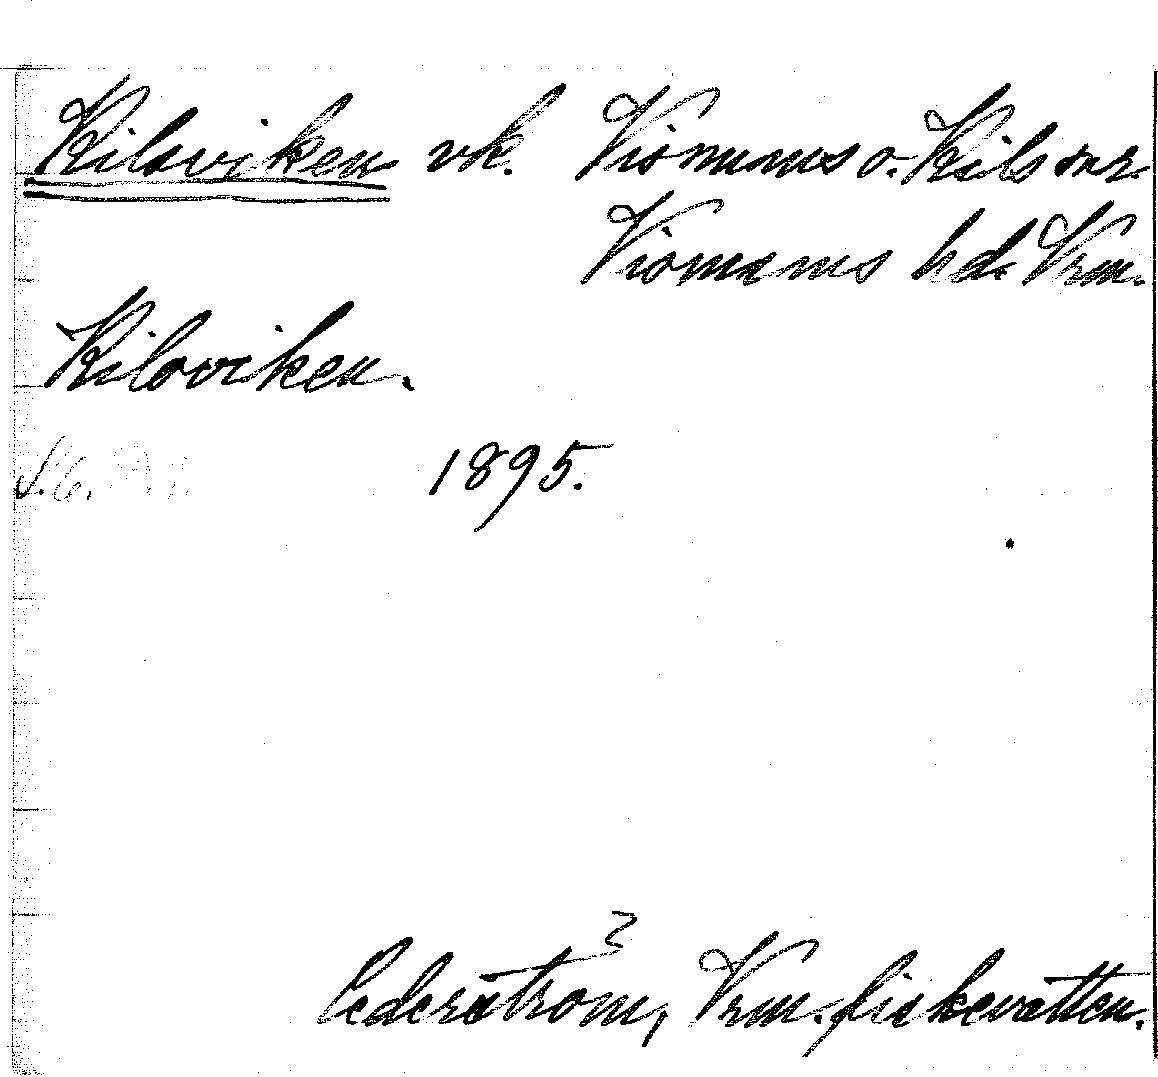 Kilsviken vk. Visnums o. Kils snr.
Visnums hd. Vrm.
Kilsviken.
1895.
Cederström, Vrm. fiskevatten.